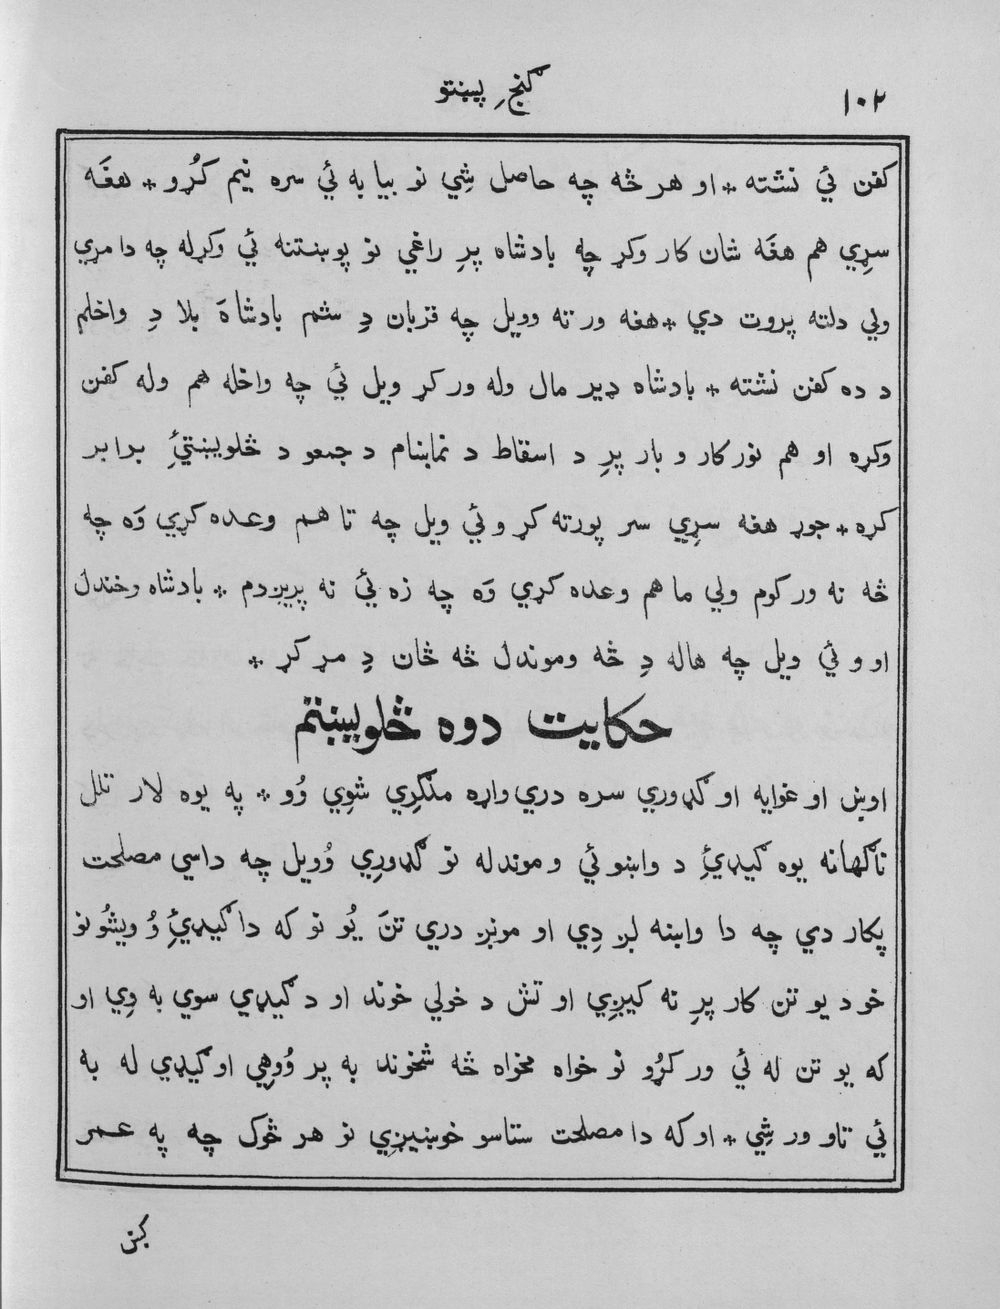 ۱۰۲
گنجِ پښتو
کفن ئي نشته * او هر څه چه حاصل شِي نو بيا به ئي سره نيم کړُو * هغَه
سړِي هم هغَه شان کار وکړ چه بادشاه پرِ راغي نو پوښتنه ئي وکړله چه دا مړي
ولي دلته پروت دي * هغه ورته وويل چه قربان دِ شم بادشاهَ بلا دِ واخلم
د ده کفن نشته * بادشاه ډير مال وله ورکړ ويل ئي چه واخله هم وله کفن
وکړه او هم نور کار و بار پرِ د اسقاط د نماښنام د جمعو د څلويښتئِ برابر
کړه * جوړ هغه سړِي سر پورته کړ و ئي ويل چه تا هم وعده کړي وَه چه
څه نه ورکوم ولي ما هم وعده کړي وَه چه زه ئي نه پريږدم * بادشاه وخندل
او و ئي ويل چه هاله دِ څه وموندل څه ځان دِ مړ کړ *
حکايت دوه څلويښتم
اوښ او غوايه او گډوري سره دري واړه ملگرِي شوِي وُو * په يوه لار تلل
ناگهانه يوه گيډئِ د واښو ئي وموندله نو گډورِي وُويل چه داسي مصلحت
پکار دي چه دا واښه لږ دِي او موږ دري تنَ يُو نو که دا گيډئِ وُ ويشُو نو
خو د يو تن کار پرِ نه کيږِي او تش د خولي خوند او د گيډي سوي به وِي او
که يو تن له ئي ورکړُو نو خواه مخواه څه شخوند به پر وُوهِي او گيډي له به
ئي تاو ورشِي * او که دا مصلحت ستاسو خوښيږِي نو هر څوک چه په عمر
کښ